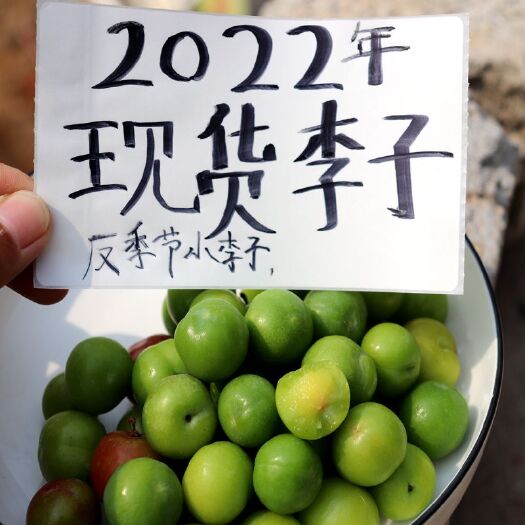 2022年
现货李子
反季节小李子,